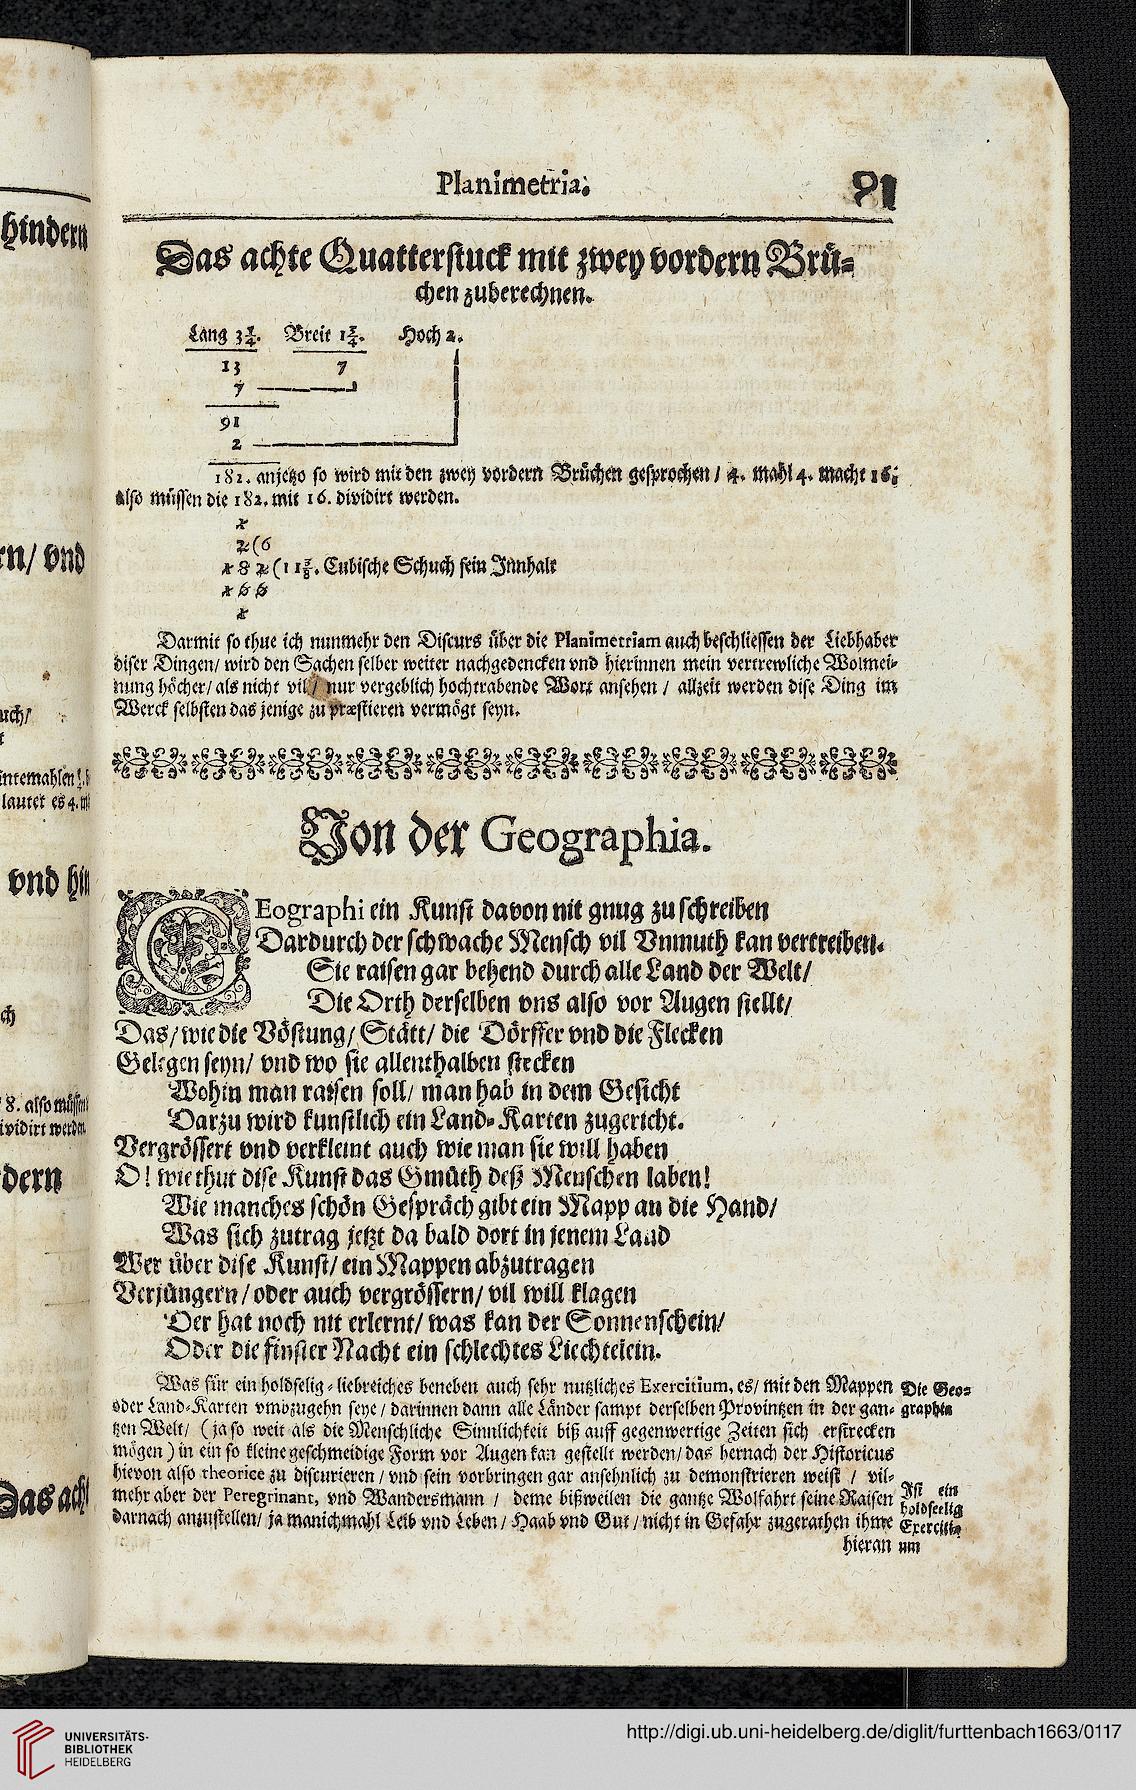 Planimetria.
91
Das achte Quatterstuck mit zwey vordern Brü-
chen zuberechnen.
Lang 3 1/4. Breit 1 3/4. Hoch 2.
13 7
7
91
2
182. anjetzo so wird mit den zwey vordern Brüchen gesprochen / 4. mahl 4. macht 16;
also müssen die 182. mit 16. dividirt werden.
1
2 (6
1 8 2 (11 3/8. Cubische Schuch sein Innhalt
1 6 6
1
Darmit so thue ich nunmehr den Discurs über die Planimetriam auch beschliessen der Liebhaber
diser Dingen / wird den Sachen selber weiter nachgedencken vnd hierinnen mein vertrewliche Wolmei-
nung höcher / als nicht vil / nur vergeblich hochtrabende Wort ansehen / allzeit werden dise Ding im
Werck selbsten das jenige zu præstieren vermögt seyn.
Von der Geographia.
GEographi ein Kunst davon nit gnug zu schreiben
Dardurch der schwache Mensch vil Vnmuth kan vertreiben.
Sie raisen gar behend durch alle Land der Welt /
Die Orth derselben vns also vor Augen stellt /
Das / wie die Vöstung / Stätt / die Dörffer vnd die Flecken
Gelegen seyn / vnd wo sie allenthalben stecken
Wohin man raisen soll / man hab in dem Gesicht
Darzu wird kunstlich ein Land-Karten zugericht.
Vergrössert vnd verkleint auch wie man sie will haben
O! wie thut dise Kunst das Gmüth deß Menschen laben!
Wie manches schön Gespräch gibt ein Mapp an die Hand /
Was sich zutrag jetzt da bald dort in jenem Land
Wer über dise Kunst / ein Mappen abzutragen
Verjüngern / oder auch vergrössern / vil will klagen
Der hat noch nit erlernt / was kan der Sonnenschein /
Oder die finster Nacht ein schlechtes Liechtelein.
Was für ein holdselig-liebreiches beneben auch sehr nutzliches Exercitium, es / mit den Mappen
oder Land-Karten vmbzugehn seye / darinnen dann alle Länder sampt derselben Provintzen in der gan-
tzen Welt / ( ja so weit als die Menschliche Sinnlichkeit biß auff gegenwertige Zeiten sich erstrecken
mögen ) in ein so kleine geschmeidige Form vor Augen kan gestellt werden / das hernach der Historicus
hievon also theorice zu discurieren / vnd sein vorbringen gar ansehnlich zu demonstrieren weist / vil-
mehr aber der Peregrinant, vnd Wandersmann / deme bißweilen die gantze Wolfahrt seine Raisen
darnach anzustellen / ja manichmahl Leib vnd Leben / Haab vnd Gut / nicht in Gefahr zugerathen ihme
hieran
Die Geo-
graphia
Ist ein
holdseelig
Exerciti-
um
hindern
rn / vnd
uch /
t
intemahlen
lautet es 4.
vnd hin
ch
8. also müssen
ividirt werden.
rdern
Das acht
UNIVERSITÄTS-
BIBLIOTHEK
HEIDELBERG
http://digi.ub.uni-heidelberg.de/diglit/furttenbach1663/0117